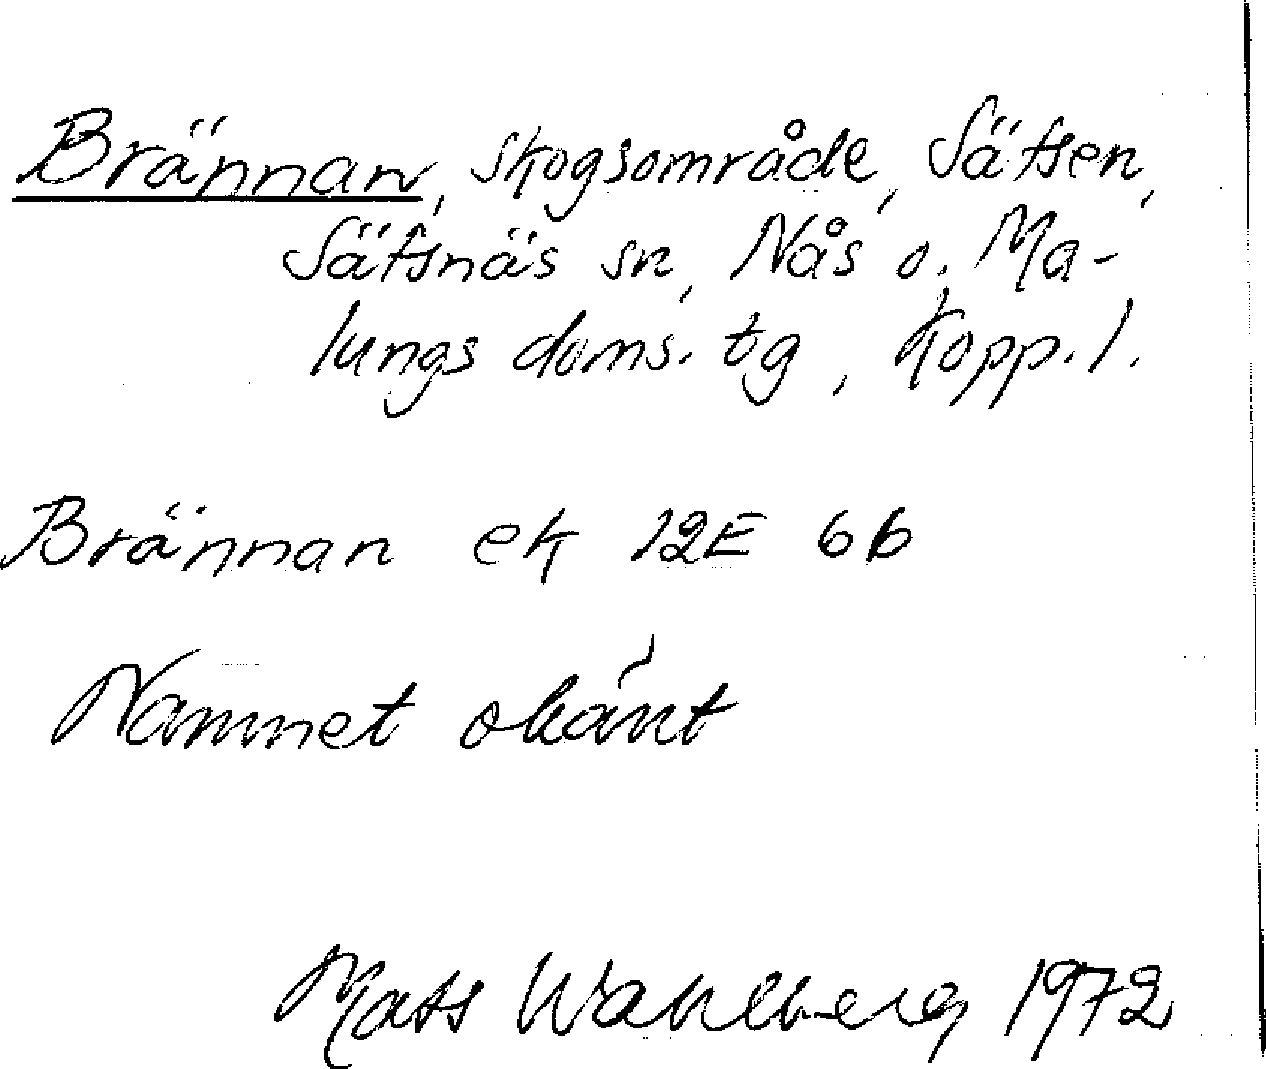 Brännan, skogsområde, Sätsen,
Sätsnäs sn, Nås o. Ma-
lungs doms. tg, Kopp. l.
Brännan ek 12E 6b
Namnet okänt
Mats Wahlberg 1972